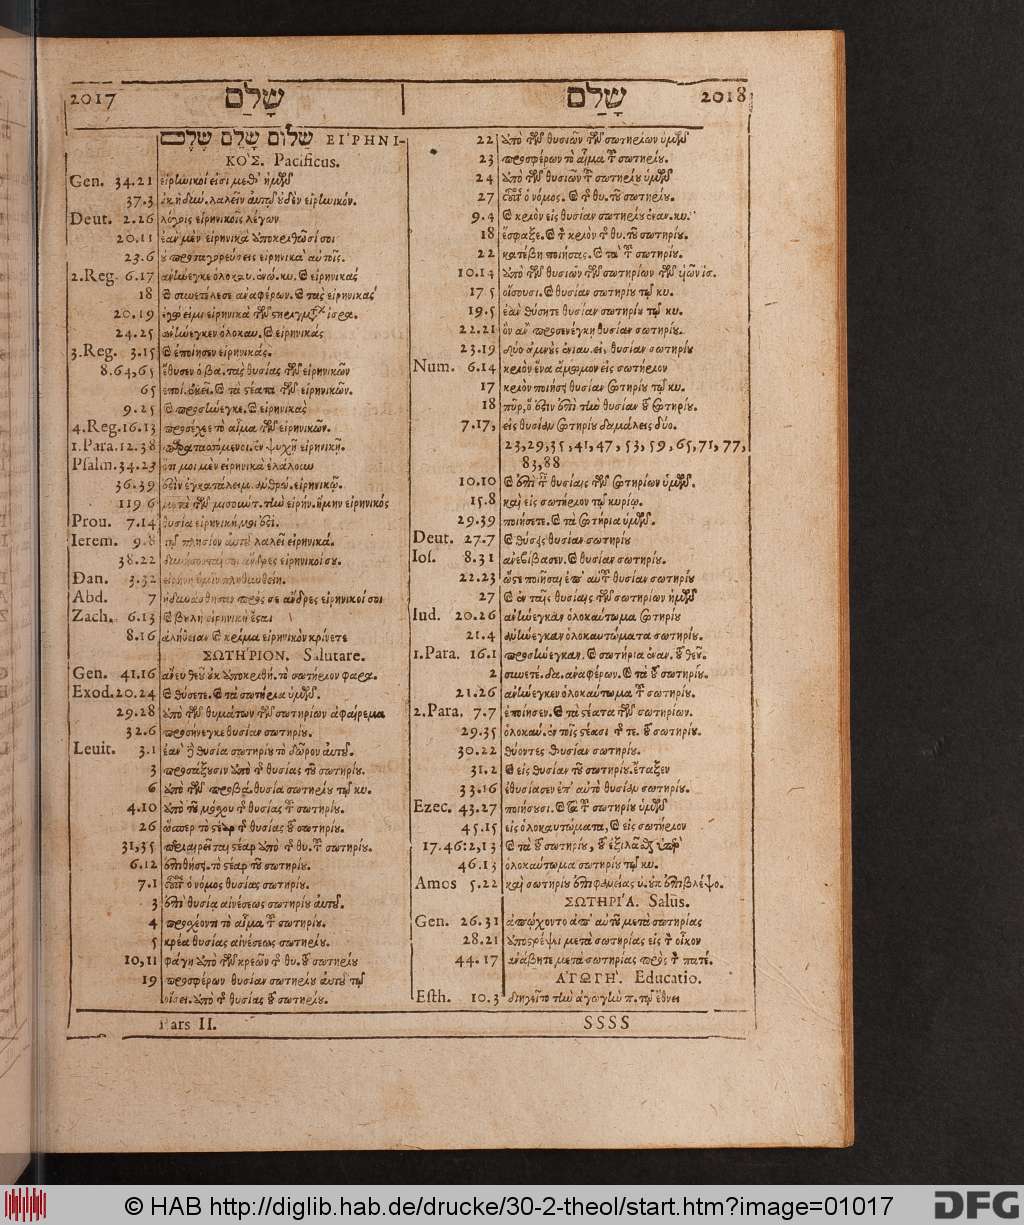 2017 שָׁלַם | שָׁלַם 2018
שָׁלוֹם שָׁלֵם שֶׁלֶם ΕΙ᾿ΡΗΝΙ-
ΚΟ᾿Σ. Pacificus.
Gen. 34.21 εἰρηνικοί εἰσι μεθ' ἡμῶν
37.3 λαλεῖν αὐτῷ οὐδὲν εἰρηνικόν.
Deut. 2.26 λόγοις εἰρηνικοῖς λέγων
20.11 ἐὰν μὲν εἰρηνικὰ ὑποκριθῶσί σοι
23.6 οὐ προσαγορεύσεις εἰρηνικὰ αὐτοῖς.
2.Reg. 6.17 εἰρηνικάς
18 ἀναφέρων. καὶ τὰς εἰρηνικάς
20.19 ἐγώ εἰμι εἰρηνικὰ
24.25 ἀνήνεγκεν ὁλοκαυ. καὶ εἰρηνικάς
3.Reg. 3.15 καὶ ἐποίησεν εἰρηνικάς.
8.64,65 τὰς θυσίας τῶν εἰρηνικῶν
65 καὶ τὰ στέατα τῶν εἰρηνικῶν.
9.25 καὶ προσήνεγκε. καὶ εἰρηνικὰς
4.Reg. 16.13 προσέχεε τὸ αἷμα τῶν εἰρηνικῶν.
1.Para. 12.38 ἐν ψυχῇ εἰρηνικῇ.
Psalm. 34.23 ὅτι μοι μὲν εἰρηνικὰ ἐλάλουν
36.39 εἰρηνικῷ.
119 6 μετὰ τῶν μισούντ. τὴν εἰρήν. ἤμην εἰρηνικός
Prou. 7.14 θυσία εἰρηνική μοί ἐστι.
Ierem. 9.8 τῷ πλησίον αὐτοῦ λαλεῖ εἰρηνικά.
38.22 ἄνδρες εἰρηνικοί σου.
Dan. 3.32 εἰρήνη ὑμῖν πληθυνθείη.
Abd. 7 πρός σε ἄνδρες εἰρηνικοί σοι
Zach. 6.13 καὶ βουλὴ εἰρηνικὴ ἔσται
8.16 ἀλήθειαν καὶ κρίμα εἰρηνικὸν κρίνετε
ΣΩΤΗ῾ΡΙΟΝ. Salutare.
Gen. 41.16 ἄνευ θεοῦ οὐκ ἀποκριθή. τὸ σωτήριον φαρα.
Exod. 20.24 καὶ θύσετε. καὶ τὰ σωτήρια ὑμῶν.
29.28 ἀπὸ τῶν θυμάτων τῶν σωτηρίων ἀφαίρεμα
32.6 προσήνεγκε θυσίαν σωτηρίου.
Leuit. 3.1 ἐὰν ᾖ θυσία σωτηρίου τὸ δῶρον αὐτοῦ.
3 προσάξουσιν ἀπὸ τῆς θυσίας τοῦ σωτηρίου.
6 ἀπὸ τῶν προβά. θυσία σωτηρίου τῷ κυ.
4.10 ἀπὸ τοῦ μόσχου τῆς θυσίας τοῦ σωτηρίου.
26 ὥσπερ τὸ στέαρ τῆς θυσίας τοῦ σωτηρίου.
31,35 περιαιρεῖται στέαρ ἀπὸ τῆς θυ. τοῦ σωτηρίου.
6.12 ἐπιθήσῃ. τὸ στέαρ τοῦ σωτηρίου.
7.1 οὗτος ὁ νόμος θυσίας σωτηρίου.
3 ἐπὶ θυσίᾳ αἰνέσεως σωτηρίου αὐτοῦ.
4 προσχέοντι τὸ αἷμα τοῦ σωτηρίου.
5 κρέα θυσίας αἰνέσεως σωτηρίου.
10,11 φάγῃ ἀπὸ τῶν κρεῶν τῆς θυ. τοῦ σωτηρίου
19 προσφέρων θυσίαν σωτηρίου αὐτοῦ τῷ
οἴσει. ἀπὸ τῆς θυσίας τοῦ σωτηρίου.
22 ἀπὸ τῶν θυσιῶν τῶν σωτηρίων ὑμῶν
23 προσφέρων τὸ αἷμα τοῦ σωτηρίου.
24 ἀπὸ τῶν θυσιῶν τοῦ σωτηρίου ὑμῶν
27 οὗτος ὁ νόμος. καὶ τῆς θυ. τοῦ σωτηρίου.
9.4 καὶ κριὸν εἰς θυσίαν σωτηρίου ἔναν. κυ.
18 ἔσφαξε. καὶ τὸν κριὸν τῆς θυ. τοῦ σωτηρίου.
22 κατέβη ποιήσας. καὶ τὰ τοῦ σωτηρίου.
10.14 ἀπὸ τῶν θυσιῶν τῶν σωτηρίων τῶν υἱῶν ἰσ.
17 5 οἴσουσι. καὶ θυσίαν σωτηρίου τῷ κυ.
19.5 ἐὰν θύσητε θυσίαν σωτηρίου τῷ κυ.
22.21 ὃς ἂν προσενέγκῃ θυσίαν σωτηρίου.
23.19 δύο ἀμνοὺς ἐνιαυ. εἰς θυσίαν σωτηρίου
Num. 6.14 κριὸν ἕνα ἄμωμον εἰς σωτήριον
17 κριὸν ποιήσῃ θυσίαν σωτηρίου τῷ κυ.
18 πῦρ, ὅ ἐστιν ὑπὸ τὴν θυσίαν τοῦ σωτηρίου.
7.17, εἰς θυσίαν σωτηρίου δαμάλεις δύο.
23, 29, 35, 41, 47, 53, 59, 65, 71, 77,
83, 88
10.10 καὶ ἐπὶ ταῖς θυσίαις τῶν σωτηρίων ὑμῶν.
15.8 καὶ εἰς σωτήριον τῷ κυρίῳ.
29.39 ποιήσετε. καὶ τὰ σωτήρια ὑμῶν.
Deut. 27.7 καὶ θύσεις θυσίαν σωτηρίου
Ios. 8.31 ἀνεβίβασεν. καὶ θυσίαν σωτηρίου.
22.23 ὥστε ποιῆσαι ἐπ' αὐτοῦ θυσίαν σωτηρίου
27 καὶ ἐν ταῖς θυσίαις τῶν σωτηρίων ἡμῶν
Iud. 20.26 ἀνήνεγκαν ὁλοκαύτωμα σωτηρίου
21.4 ἀνήνεγκαν ὁλοκαυτώματα σωτηρίου.
1.Para. 16.1 προσήνεγκαν. καὶ σωτήρια ἐναν. τοῦ θεοῦ.
2 συνετέ. δα. ἀναφέρων. καὶ τὰ τοῦ σωτηρίου.
21.26 ἀνήνεγκεν ὁλοκαύτωμα τοῦ σωτηρίου.
2.Para. 7.7 ἐποίησεν. καὶ τὰ στέατα τῶν σωτηρίων.
29.35 ὁλοκαύ. ἐν τοῖς στέασι τῆς τε. τοῦ σωτηρίου.
30.22 θύοντες θυσίαν σωτηρίου.
31.2 καὶ εἰς θυσίαν τοῦ σωτηρίου. ἔταξεν
33.16 ἐθυσίασεν ἐπ' αὐτὸ θυσίαν σωτηρίου.
Ezec. 43.27 ποιήσουσι. καὶ τὰ τοῦ σωτηρίου ὑμῶν
45.15 εἰς ὁλοκαυτώματα, καὶ εἰς σωτήριον
17.46:2,13 καὶ τὰ τοῦ σωτηρίου, τοῦ ἐξιλάσασθαι ὑπὲρ
46.13 ὁλοκαύτωμα σωτηρίου τῷ κυ.
Amos 5.22 καὶ σωτηρίου ἐπιφανείας ὑ. οὐκ ἐπιβλέψο.
ΣΩΤΗΡΙ῾Α. Salus.
Gen. 26.31 ἀπῴχοντο ἀπ' αὐτοῦ μετὰ σωτηρίας
28.21 ἀποστρέψει μετὰ σωτηρίας εἰς τὸν οἶκον
44.17 ἀνάβητε μετὰ σωτηρίας πρὸς τὸν πατέ.
Α᾿ΓΩΓΗ῾. Educatio.
Esth. 10.3 διηγεῖτο τὴν ἀγωγὴν π. τῷ ἔθνει
Pars II. SSSS
© HAB http://diglib.hab.de/drucke/30-2-theol/start.htm?image=01017
DFG